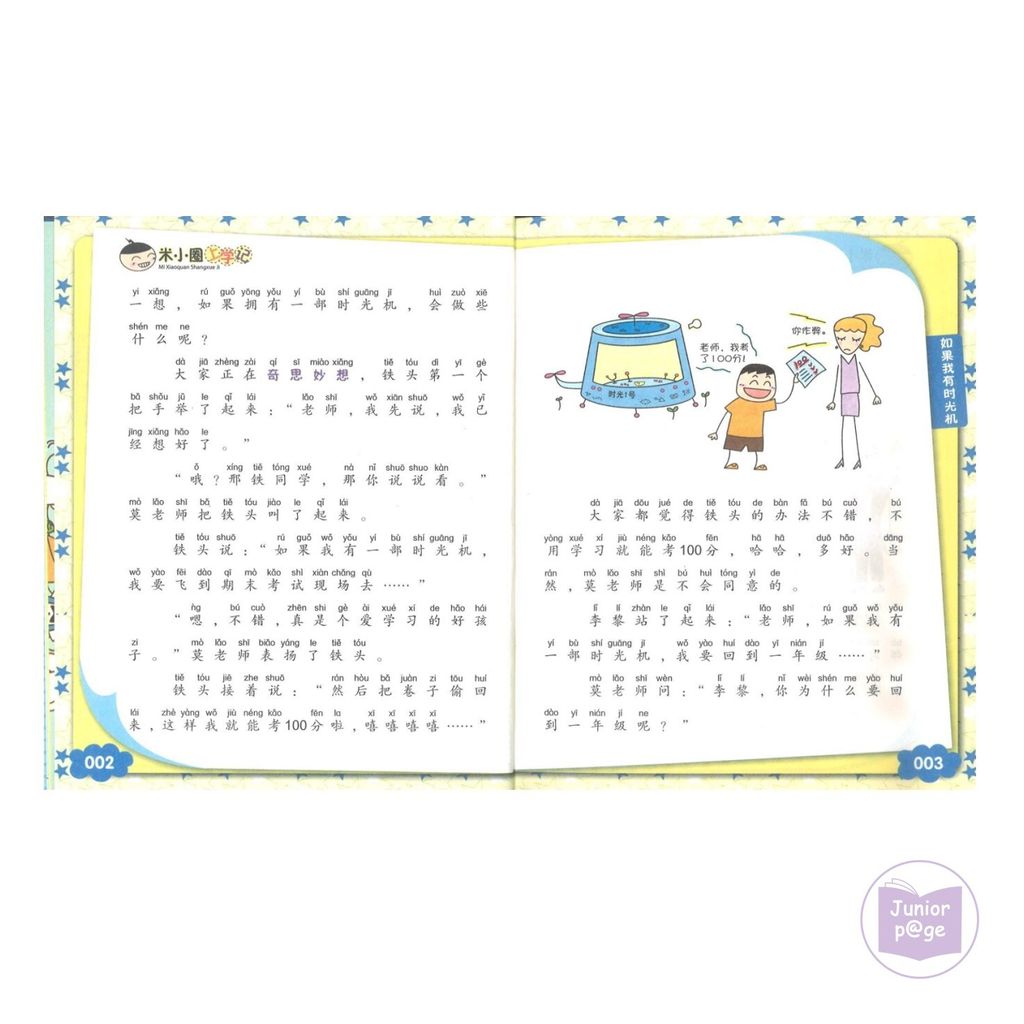 米小圈上学记
Mi Xiaoquan Shangxue Ji
yi xiǎng rú guǒ yōng yǒu yí bù shí guāng jī huì zuò xiē
一想，如果拥有一部时光机，会做些
shén me ne
什么呢？
dà jiā zhèng zài qí sī miào xiǎng tiě tóu dì yī gè
大家正在奇思妙想，铁头第一个
bǎ shǒu jǔ le qǐ lái lǎo shī wǒ xiān shuō wǒ yǐ
把手举了起来：“老师，我先说，我已
jīng xiǎng hǎo le
经想好了。”
ó xíng tiě tóng xué nà nǐ shuō shuo kàn
“哦？邢铁同学，那你说说看。”
mò lǎo shī bǎ tiě tóu jiào le qǐ lái
莫老师把铁头叫了起来。
tiě tóu shuō rú guǒ wǒ yǒu yí bù shí guāng jī
铁头说：“如果我有一部时光机，
wǒ yào fēi dào qī mò kǎo shì xiàn chǎng qù
我要飞到期末考试现场去……”
ǹg bú cuò zhēn shì gè ài xué xí de hǎo hái
“嗯，不错，真是个爱学习的好孩
zi mò lǎo shī biǎo yáng le tiě tóu
子。”莫老师表扬了铁头。
tiě tóu jiē zhe shuō rán hòu bǎ juàn zi tōu huí
铁头接着说：“然后把卷子偷回
lái zhè yàng wǒ jiù néng kǎo fēn la xī xī xī xī
来，这样我就能考100分啦，嘻嘻嘻嘻……”
002
时光1号
老师，我考
了100分！
100
你作弊。
如果我有时光机
dà jiā dōu jué de tiě tóu de bàn fǎ bú cuò bú
大家都觉得铁头的办法不错，不
yòng xué xí jiù néng kǎo fēn hā hā duō hǎo dāng
用学习就能考100分，哈哈，多好。当
rán mò lǎo shī shì bú huì tóng yì de
然，莫老师是不会同意的。
lǐ lí zhàn le qǐ lái lǎo shī rú guǒ wǒ yǒu
李黎站了起来：“老师，如果我有
yí bù shí guāng jī wǒ yào huí dào yī nián jí
一部时光机，我要回到一年级……”
mò lǎo shī wèn lǐ lí nǐ wèi shén me yào huí
莫老师问：“李黎，你为什么要回
dào yī nián jí ne
到一年级呢？”
003
Junior
p@ge